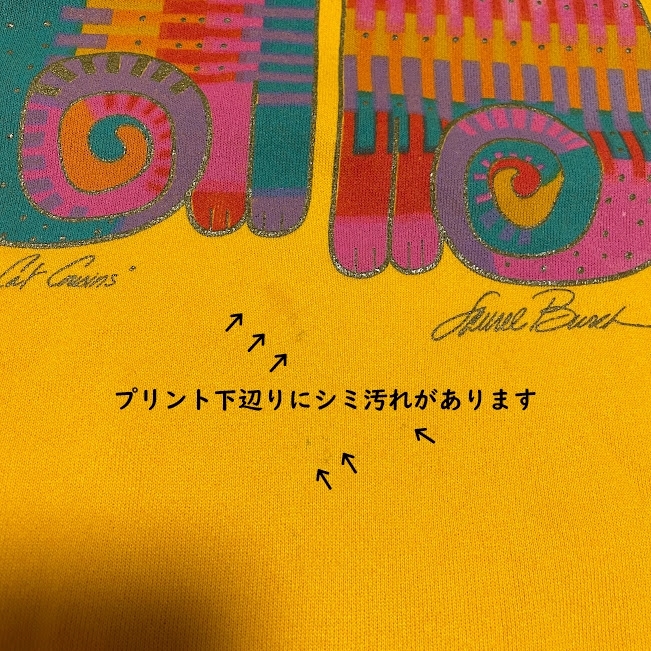 Cat Cousins"
Laurel Burch
プリント下辺りにシミ汚れがあります